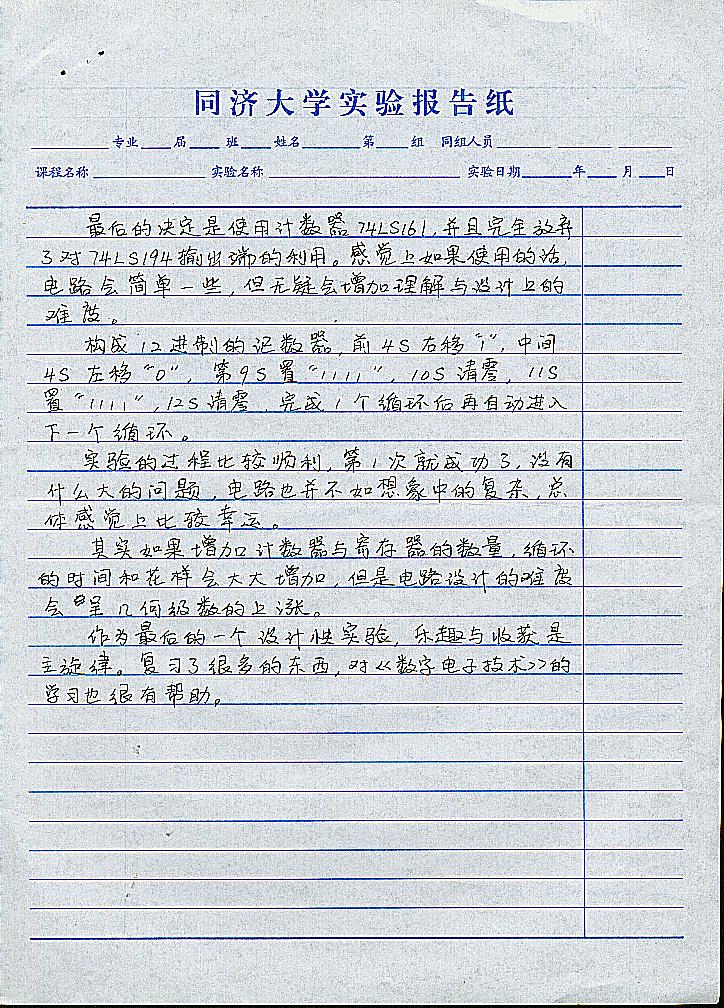 同济大学实验报告纸
专业 届 班 姓名 第 组 同组人员
课程名称 实验名称 实验日期 年 月 日
最后的决定是使用计数器74LS161,并且完全放弃
了对74LS194输出端的利用。感觉上如果使用的话,
电路会简单一些,但无疑会增加理解与设计上的
难度。
构成12进制的记数器,前4S右移"1",中间
4S左移"0",第9S置"1111",10S清零,11S
置"1111",12S清零,完成1个循环后再自动进入
下一个循环。
实验的过程比较顺利,第1次就成功了,没有
什么大的问题,电路也并不如想象中的复杂,总
体感觉上比较幸运。
其实如果增加计数器与寄存器的数量,循环
的时间和花样会大大增加,但是电路设计的难度
会呈几何级数的上涨。
作为最后的一个设计性实验,乐趣与收获是
主旋律。复习了很多的东西,对《数字电子技术》的
学习也很有帮助。